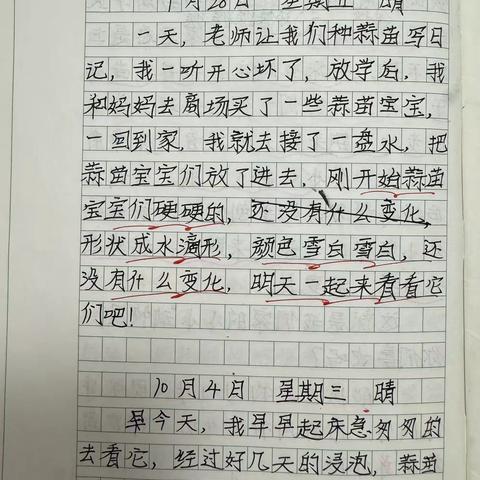 月28日 星期五 晴
一天，老师让我们种蒜苗写日
记，我一听开心坏了，放学后，我
和妈妈去商场买了一些蒜苗宝宝，
一回到家，我就去接了一盘水，把
蒜苗宝宝们放了进去，刚开始蒜苗
宝宝们硬硬的，还没有什么变化，
形状成水滴形，颜色雪白雪白，还
没有什么变化，明天一起来看看它
们吧！
10月4日 星期三 晴
早今天，我早早起床急匆匆的
去看它，经过好几天的浸泡，蒜苗